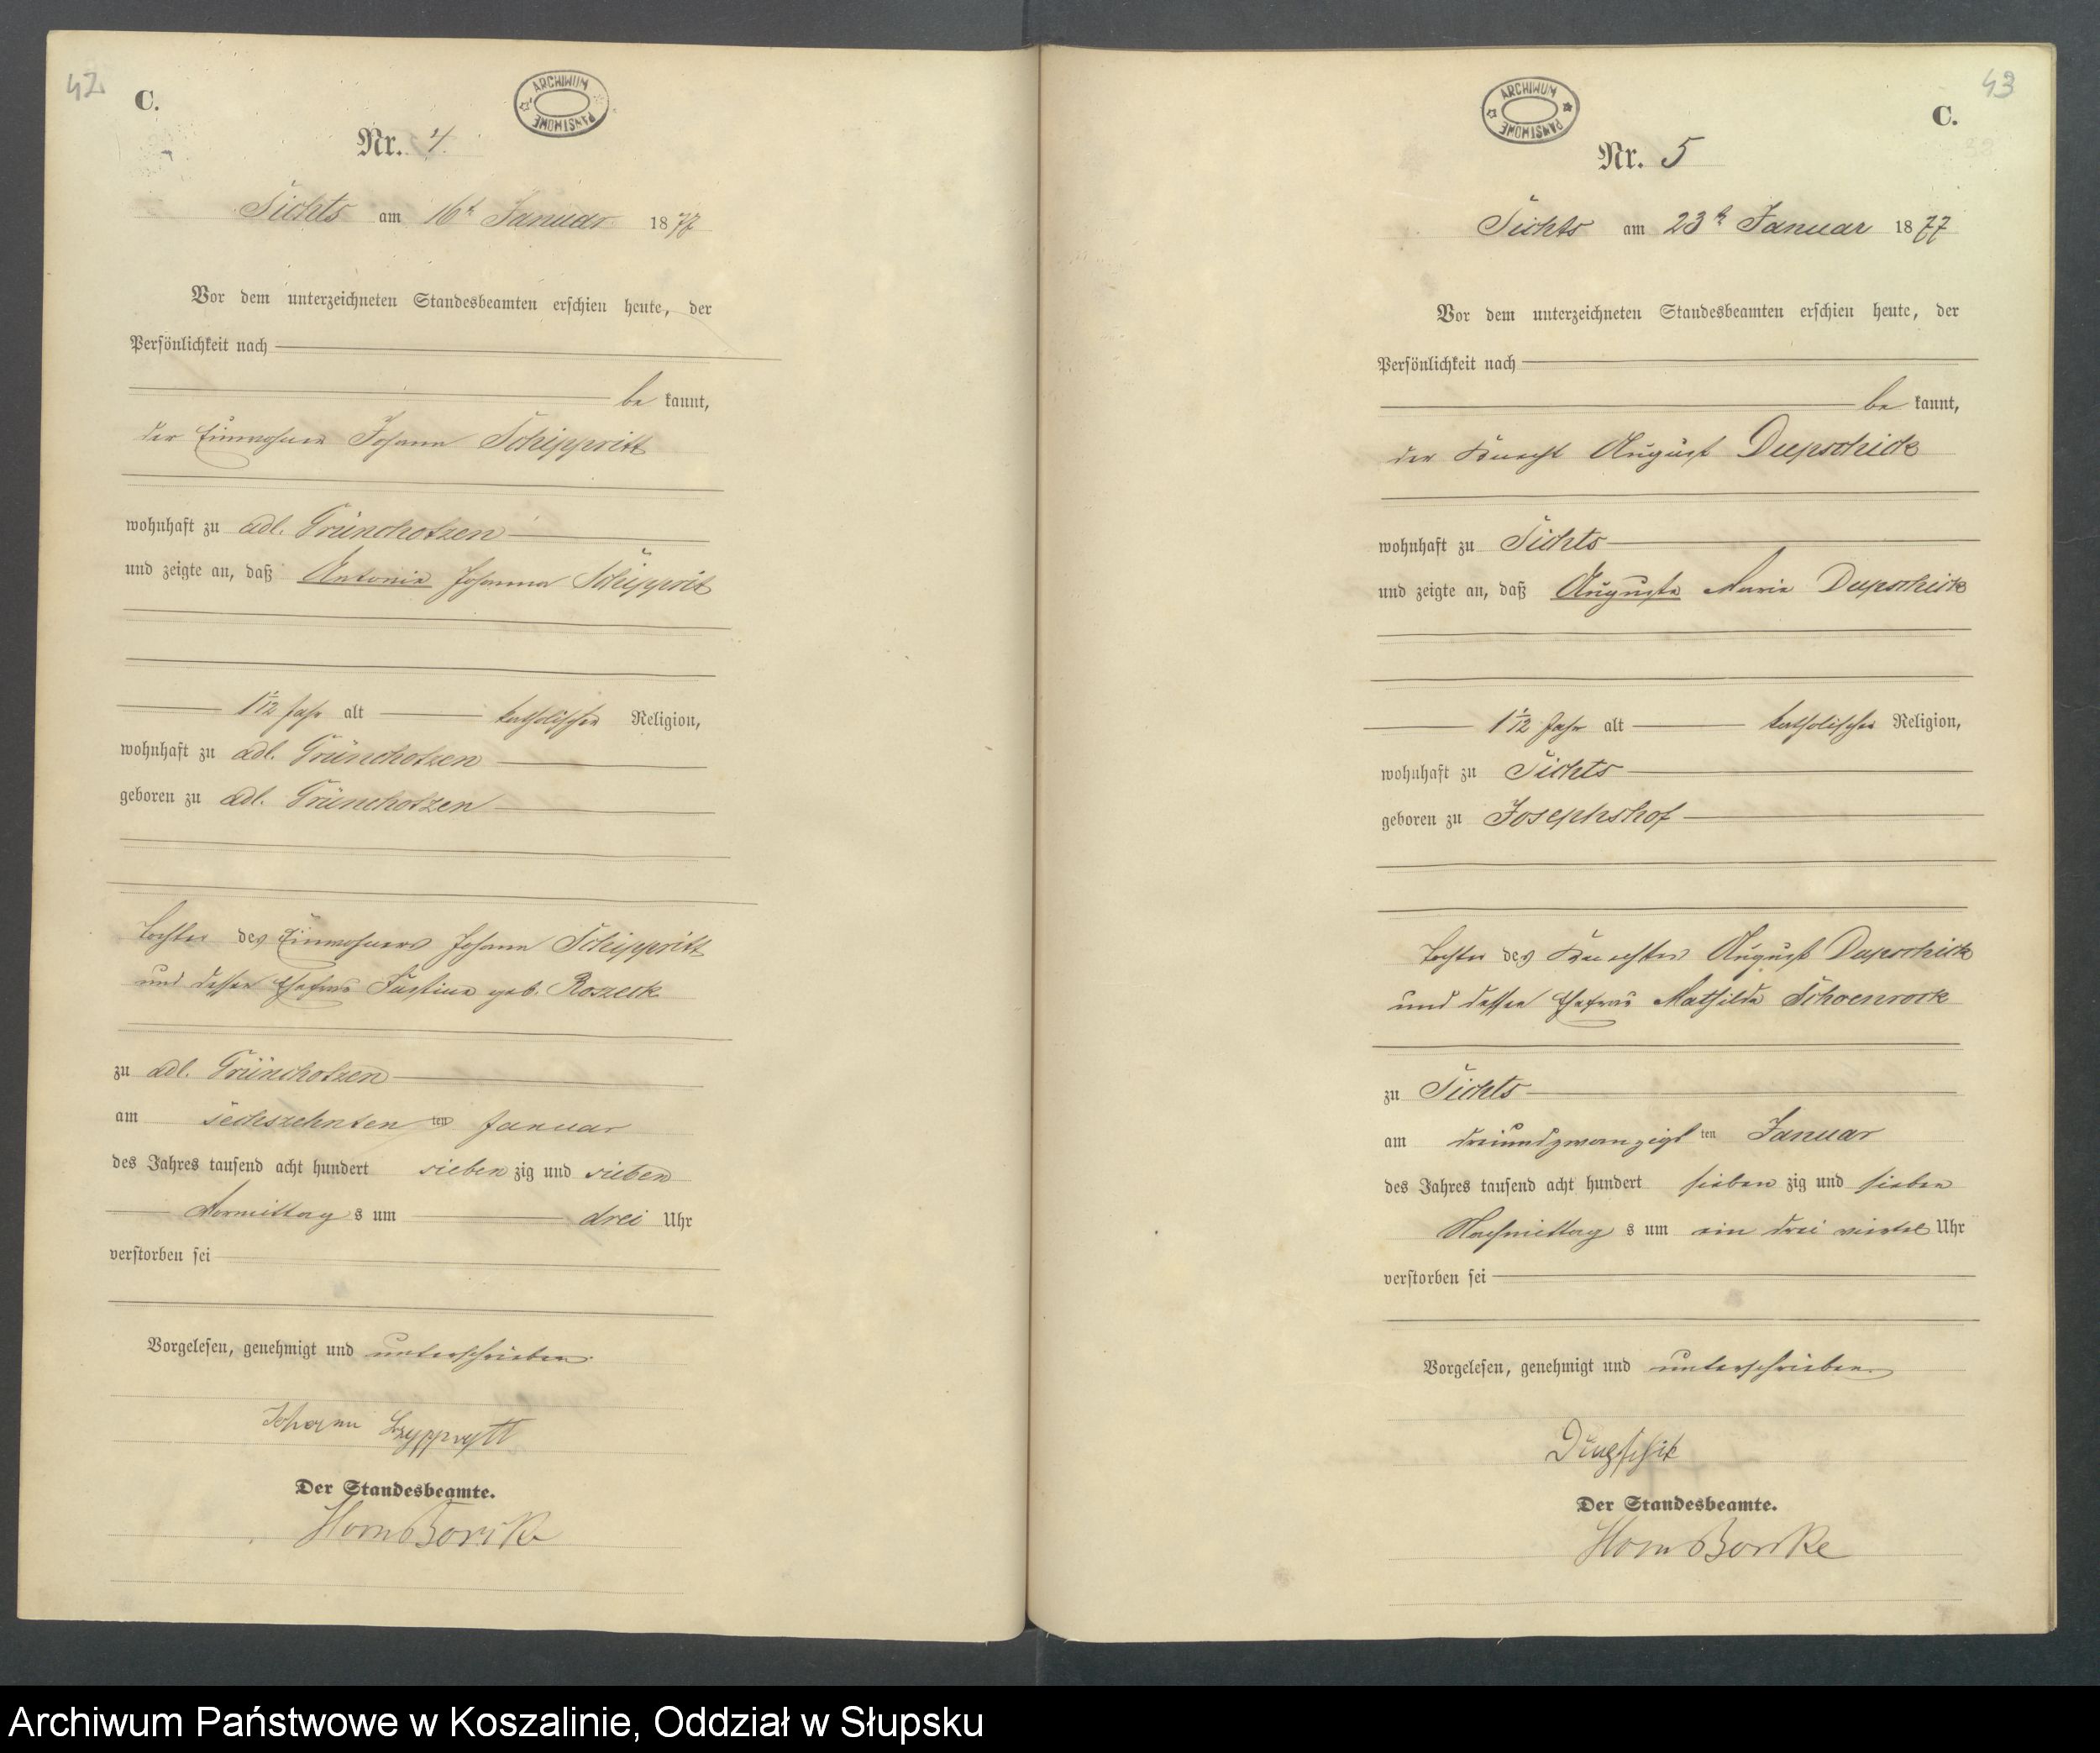 42
C.
ARCHIWUM PAŃSTWOWE
Nr. 4.
Sichts am 16t Januar 1877
Vor dem unterzeichneten Standesbeamten erschien heute, der
Persönlichkeit nach
be kannt,
der Einwohner Johann Schippritt
wohnhaft zu adl. Grünchotzen
und zeigte an, daß Antonie Johanna Schipprit
1 1/12 Jahr alt katholischer Religion,
wohnhaft zu adl. Grünchotzen
geboren zu adl. Grünchotzen
Tochter des Einwohners Johann Schippritt
und dessen Ehefrau Justine geb. Roszeck
zu adl. Grünchotzen
am sechszehnten ten Januar
des Jahres tausend acht hundert sieben zig und sieben
Vormittag s um drei Uhr
verstorben sei
Vorgelesen, genehmigt und unterschrieben.
Johann Szypprytt
Der Standesbeamte.
43
C.
ARCHIWUM PAŃSTWOWE
Nr. 5
Sichts am 23t Januar 1877
Vor dem unterzeichneten Standesbeamten erschien heute, der
Persönlichkeit nach
be kannt,
der Knecht August Depschick
wohnhaft zu Sichts
und zeigte an, daß Auguste Marie Depschick
1 1/12 Jahr alt katholischer Religion,
wohnhaft zu Sichts
geboren zu Josephshof
Tochter des Knechtes August Depschick
und dessen Ehefrau Mathilde Schoenrock
zu Sichts
am dreiundzwanzigst ten Januar
des Jahres tausend acht hundert sieben zig und sieben
Nachmittag s um ein drei viertel Uhr
verstorben sei
Vorgelesen, genehmigt und unterschrieben
Der Standesbeamte.
Archiwum Państwowe w Koszalinie, Oddział w Słupsku